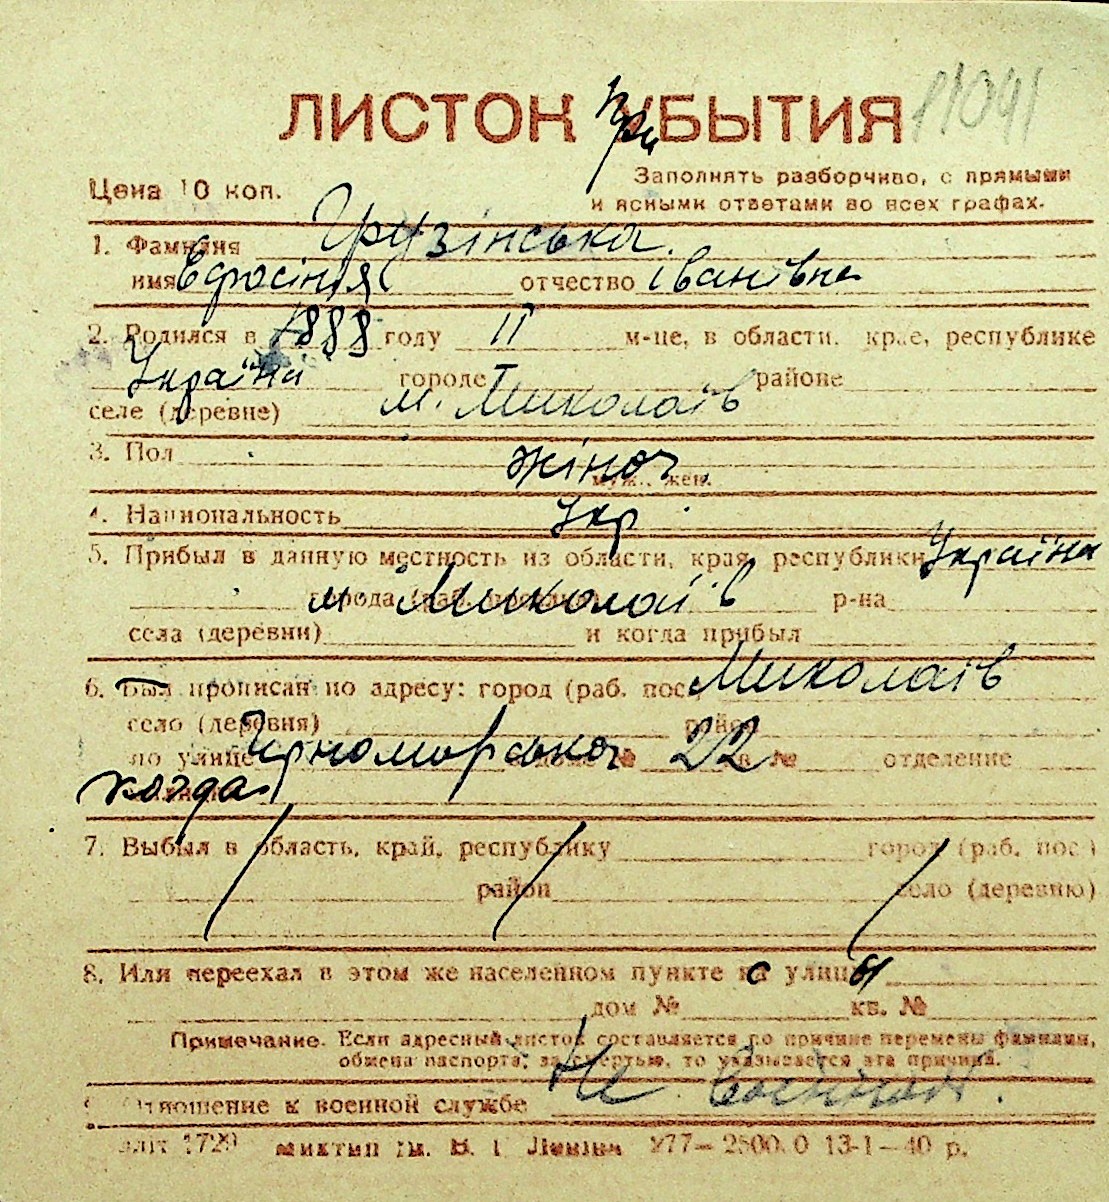 ЛИСТОК При УБЫТИЯ 11041
Цена 10 коп.
Заполнять разборчиво, с прямыми
и ясными ответами во всех графах.
1. Фамилия Грузінська
имя Ефросінія отчество Іванівна
2. Родился в 1888 году II м-це, в области, крае, республике
Україна городе районе
селе (деревне) м. Миколаїв
3. Пол жіноч.
муж., жен.
4. Национальность Укр.
5. Прибыл в данную местность из области, края, республики Україна
города м. Миколаїв р-на
села (деревни) и когда прибыл
6. Был прописан по адресу: город (раб. пос. Миколаїв
село (деревня) район
по улице Чорноморська № 22 кв. № отделение
когда
7. Выбыл в область, край, республику город (раб. пос.)
район село (деревню)
8. Или переехал в этом же населенном пункте с улицы
дом № кв. №
Примечание. Если адресный листок составляется по причине перемены фамилии,
обмена паспорта, за смертью, то указывается эта причина.
Отношение к военной службе Не
1729 миктип им. В. І. Леніна 277—2500.0 13-1—40 р.